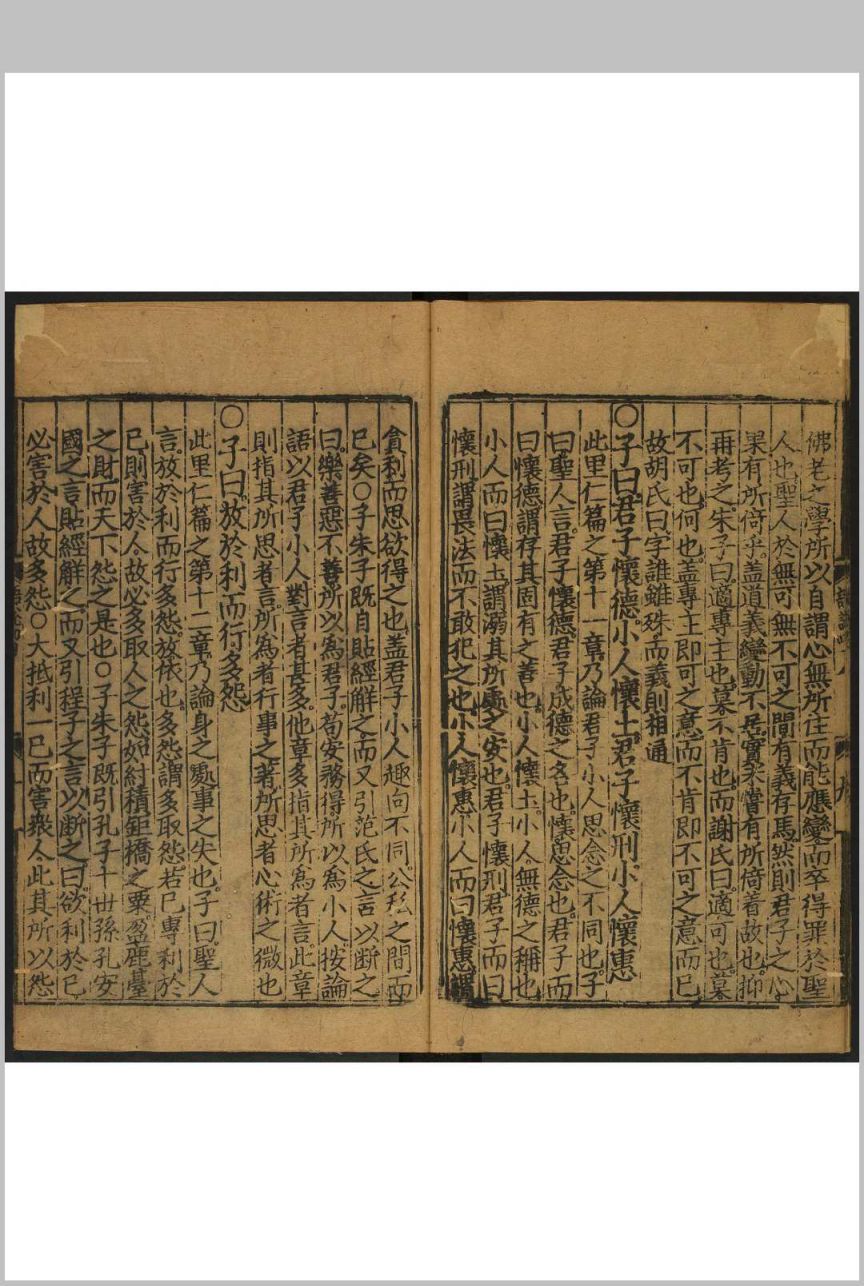 佛老之學所以自謂心無所住而能應變而卒得罪於聖
人也聖人於無可無不可之間有義存焉然則君子之心
果有所倚乎盖道義變動不居實未甞有所倚着故也抑
再考之朱子曰適專主也莫不肯也而謝氏曰適可也莫
不可也何也盖專主即可之意而不肯即不可之意而已
故胡氏曰字誰雖殊而義則相通
○子曰君子懷德小人懷土君子懷刑小人懷惠
此里仁篇之第十一章乃論君子小人思念之不同也子
曰聖人言君子懷德君子成德之名也懷思念也君子而
曰懷德謂存其固有之善也小人懷土小人無德之稱也
小人而曰懷土謂溺其所處之安也君子懷刑君子而曰
懷刑謂畏法而不敢犯之也小人懷惠小人而曰懷惠謂
貪利而思欲得之也盖君子小人趣向不同公私之間而
已矣○子朱子既自貼經解之而又引范氏之言以断之
曰樂善惡不善所以為君子苟安務得所以為小人按論
語以君子小人對言者甚多他章多指其所為者言此章
則指其所思者言所為者行事之著所思者心術之微也
○子曰放於利而行多怨
此里仁篇之第十二章乃論身之處事之失也子曰聖人
言放於利而行多怨放依也多怨謂多取怨若已專利於
已則害於人故必多取人之怨如紂積鉅橋之粟盈鹿臺
之財而天下怨之是也○子朱子既引孔子十世孫孔安
國之言貼經解之而又引程子之言以断之曰欲利於已
必害於人故多怨○大抵利一已而害衆人此其所以怨